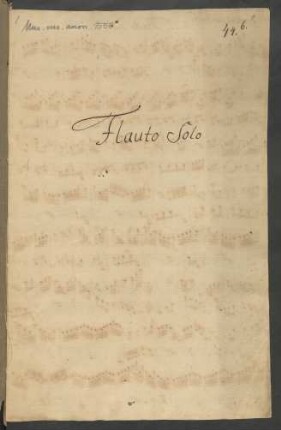 Mus. ms. anon.
Flauto Solo